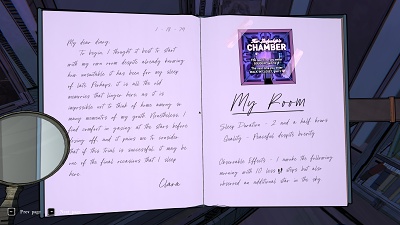 1 - 18 - 79
My dear diary,
To begin I thought it best to start
with my own room despite already knowing
how unsuitable it has been for my sleep
of late. Perhaps it is all the old
memories that linger here, as it is
impossible not to think of home among so
many mementos of my youth. Nonetheless I
find comfort in gazing at the stars before
dozing off, and it pains me to consider
that if this trial is successful, it may be
one of the final occasions that I sleep
here.
Clara
The
CHAMBER
My Room
Sleep Duration - 2 and a half hours
Quality - Peaceful despite brevity
Observable Effects - I awoke the following
morning with 10 less steps but also
observed an additional star in the sky.
Prev page